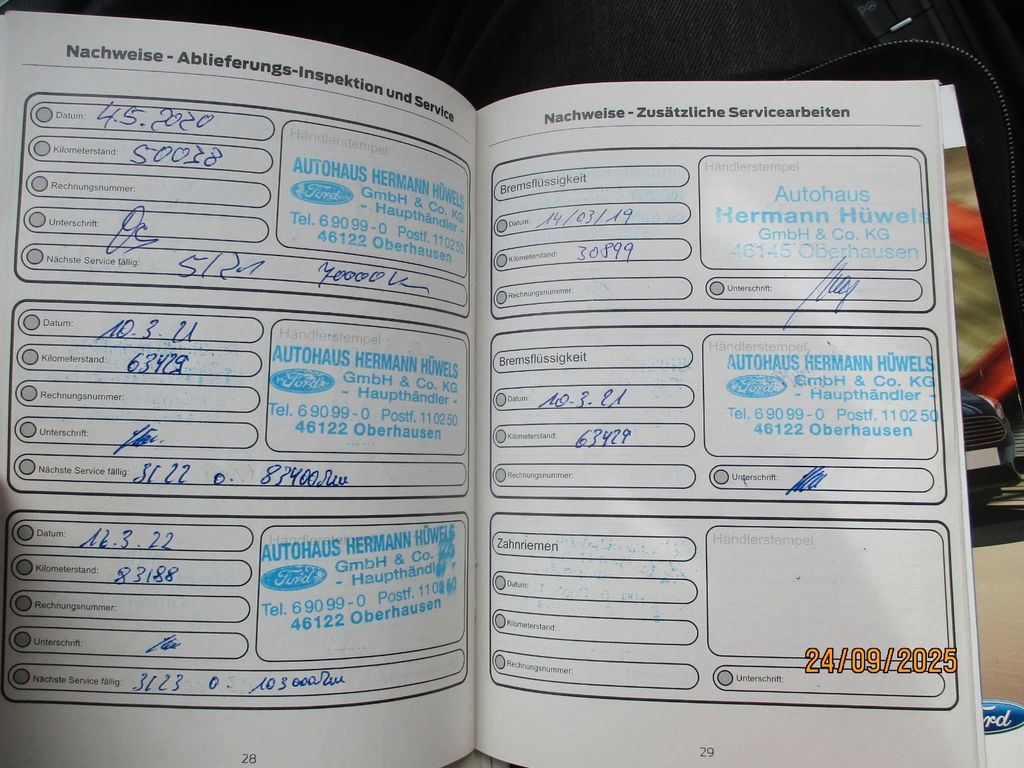 Nachweise - Ablieferungs-Inspektion und Service
Datum: 4.5.2020
Kilometerstand: 50038
Rechnungsnummer:
Unterschrift:
Nächste Service fällig: 5/21 70000 Km
Händlerstempel
AUTOHAUS HERMANN HÜWELS
Ford GmbH & Co. KG
- Haupthändler -
Tel. 6 90 99 - 0 Postf. 11 02 50
46122 Oberhausen
Datum: 10.3.21
Kilometerstand: 63429
Rechnungsnummer:
Unterschrift:
Nächste Service fällig: 3/22 o. 83400km
Händlerstempel
AUTOHAUS HERMANN HÜWELS
Ford GmbH & Co. KG
- Haupthändler -
Tel. 6 90 99 - 0 Postf. 11 02 50
46122 Oberhausen
Datum: .3.22
Kilometerstand: 83188
Rechnungsnummer:
Unterschrift:
Nächste Service fällig: 3/23 o. 103000km
Händlerstempel
AUTOHAUS HERMANN HÜWELS
Ford GmbH & Co.
- Haupthändl
Tel. 6 90 99 - 0 Postf. 11 02 50
46122 Oberhausen
28
Nachweise - Zusätzliche Servicearbeiten
Bremsflüssigkeit
Datum: 14/03/19
Kilometerstand: 30899
Rechnungsnummer:
Händlerstempel
Autohaus
Hermann Hüwels
GmbH & Co. KG
46145 Oberhausen
Unterschrift:
Bremsflüssigkeit
Datum: 10.3.21
Kilometerstand: 63429
Rechnungsnummer:
Händlerstempel
AUTOHAUS HERMANN HÜWELS
Ford GmbH & Co. KG
- Haupthändler -
Tel. 6 90 99 - 0 Postf. 11 02 50
46122 Oberhausen
Unterschrift:
Zahnriemen
Datum:
Kilometerstand:
Rechnungsnummer:
Händlerstempel
Unterschrift:
29
24/09/2025
rd